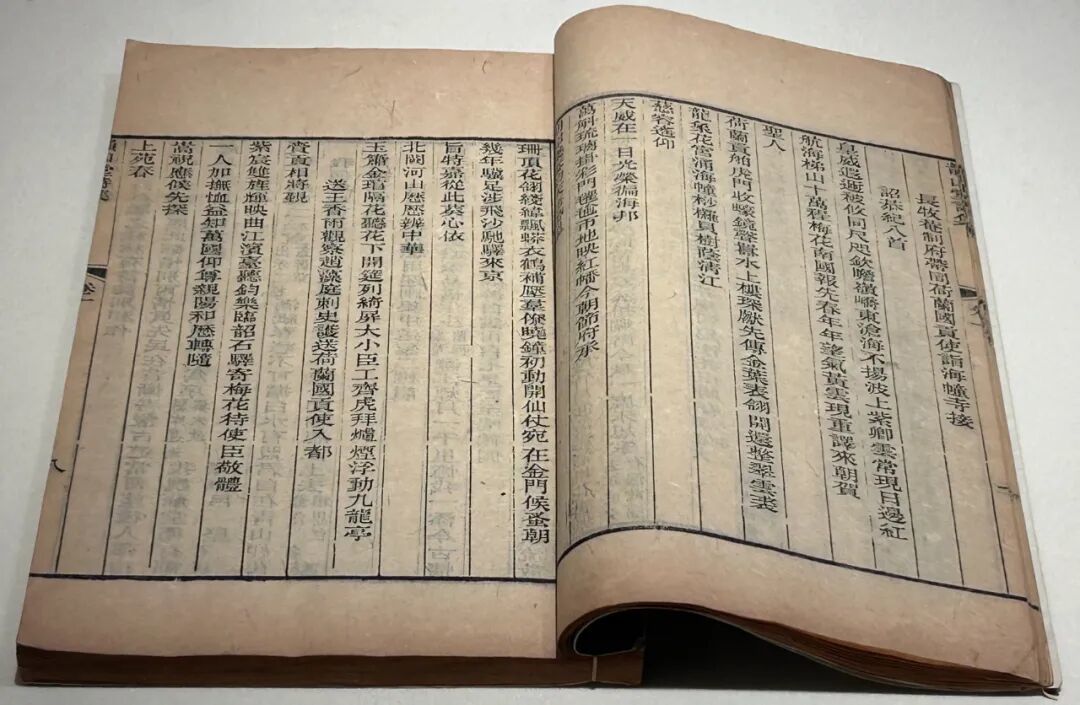 長牧菴制府帶同荷蘭國貢使詣海幢寺接
詔恭紀八首
皇威遐邇被攸同尺咫欽瞻嶺嶠東滄海不揚波上紫卿雲常現日邊紅
航海梯山十萬程梅花南國報先春年年望氣黃雲現重譯來朝賀
聖人
荷蘭貢舶虎門收蠔鏡聲囂水上樓琛獻先傳金葉表翎開還整翠雲裘
龍象花宮涌海幢桫欏貝樹蔭清江
慈容遙仰
天威在一日光榮徧海邦
萬斛琉璃掛彩門氍毹匝地映紅幡今朝節府承
珊頂花翎綬緯飄蟒衣鶴補壓羣僚曉鐘初動開仙仗宛在金門候蚤朝
幾年驥足涉飛沙馳驛來京
旨特嘉從此葵心依
北闕河山歷歷辨中華
玉簫金琯隔花聽花下開筵列綺屏大小臣工齊虎拜爐煙浮動九龍亭
送王香雨觀察趙藻庭刺史護送荷蘭國貢使入都
賓貢相將覲
紫宸雙旌輝映曲江濱臺聽鈞樂臨韶石驛寄梅花待使臣敬體
一人加撫恤益知萬國仰尊親陽和歷轉隨
嵩祝應候先探
上苑春
卷一
八